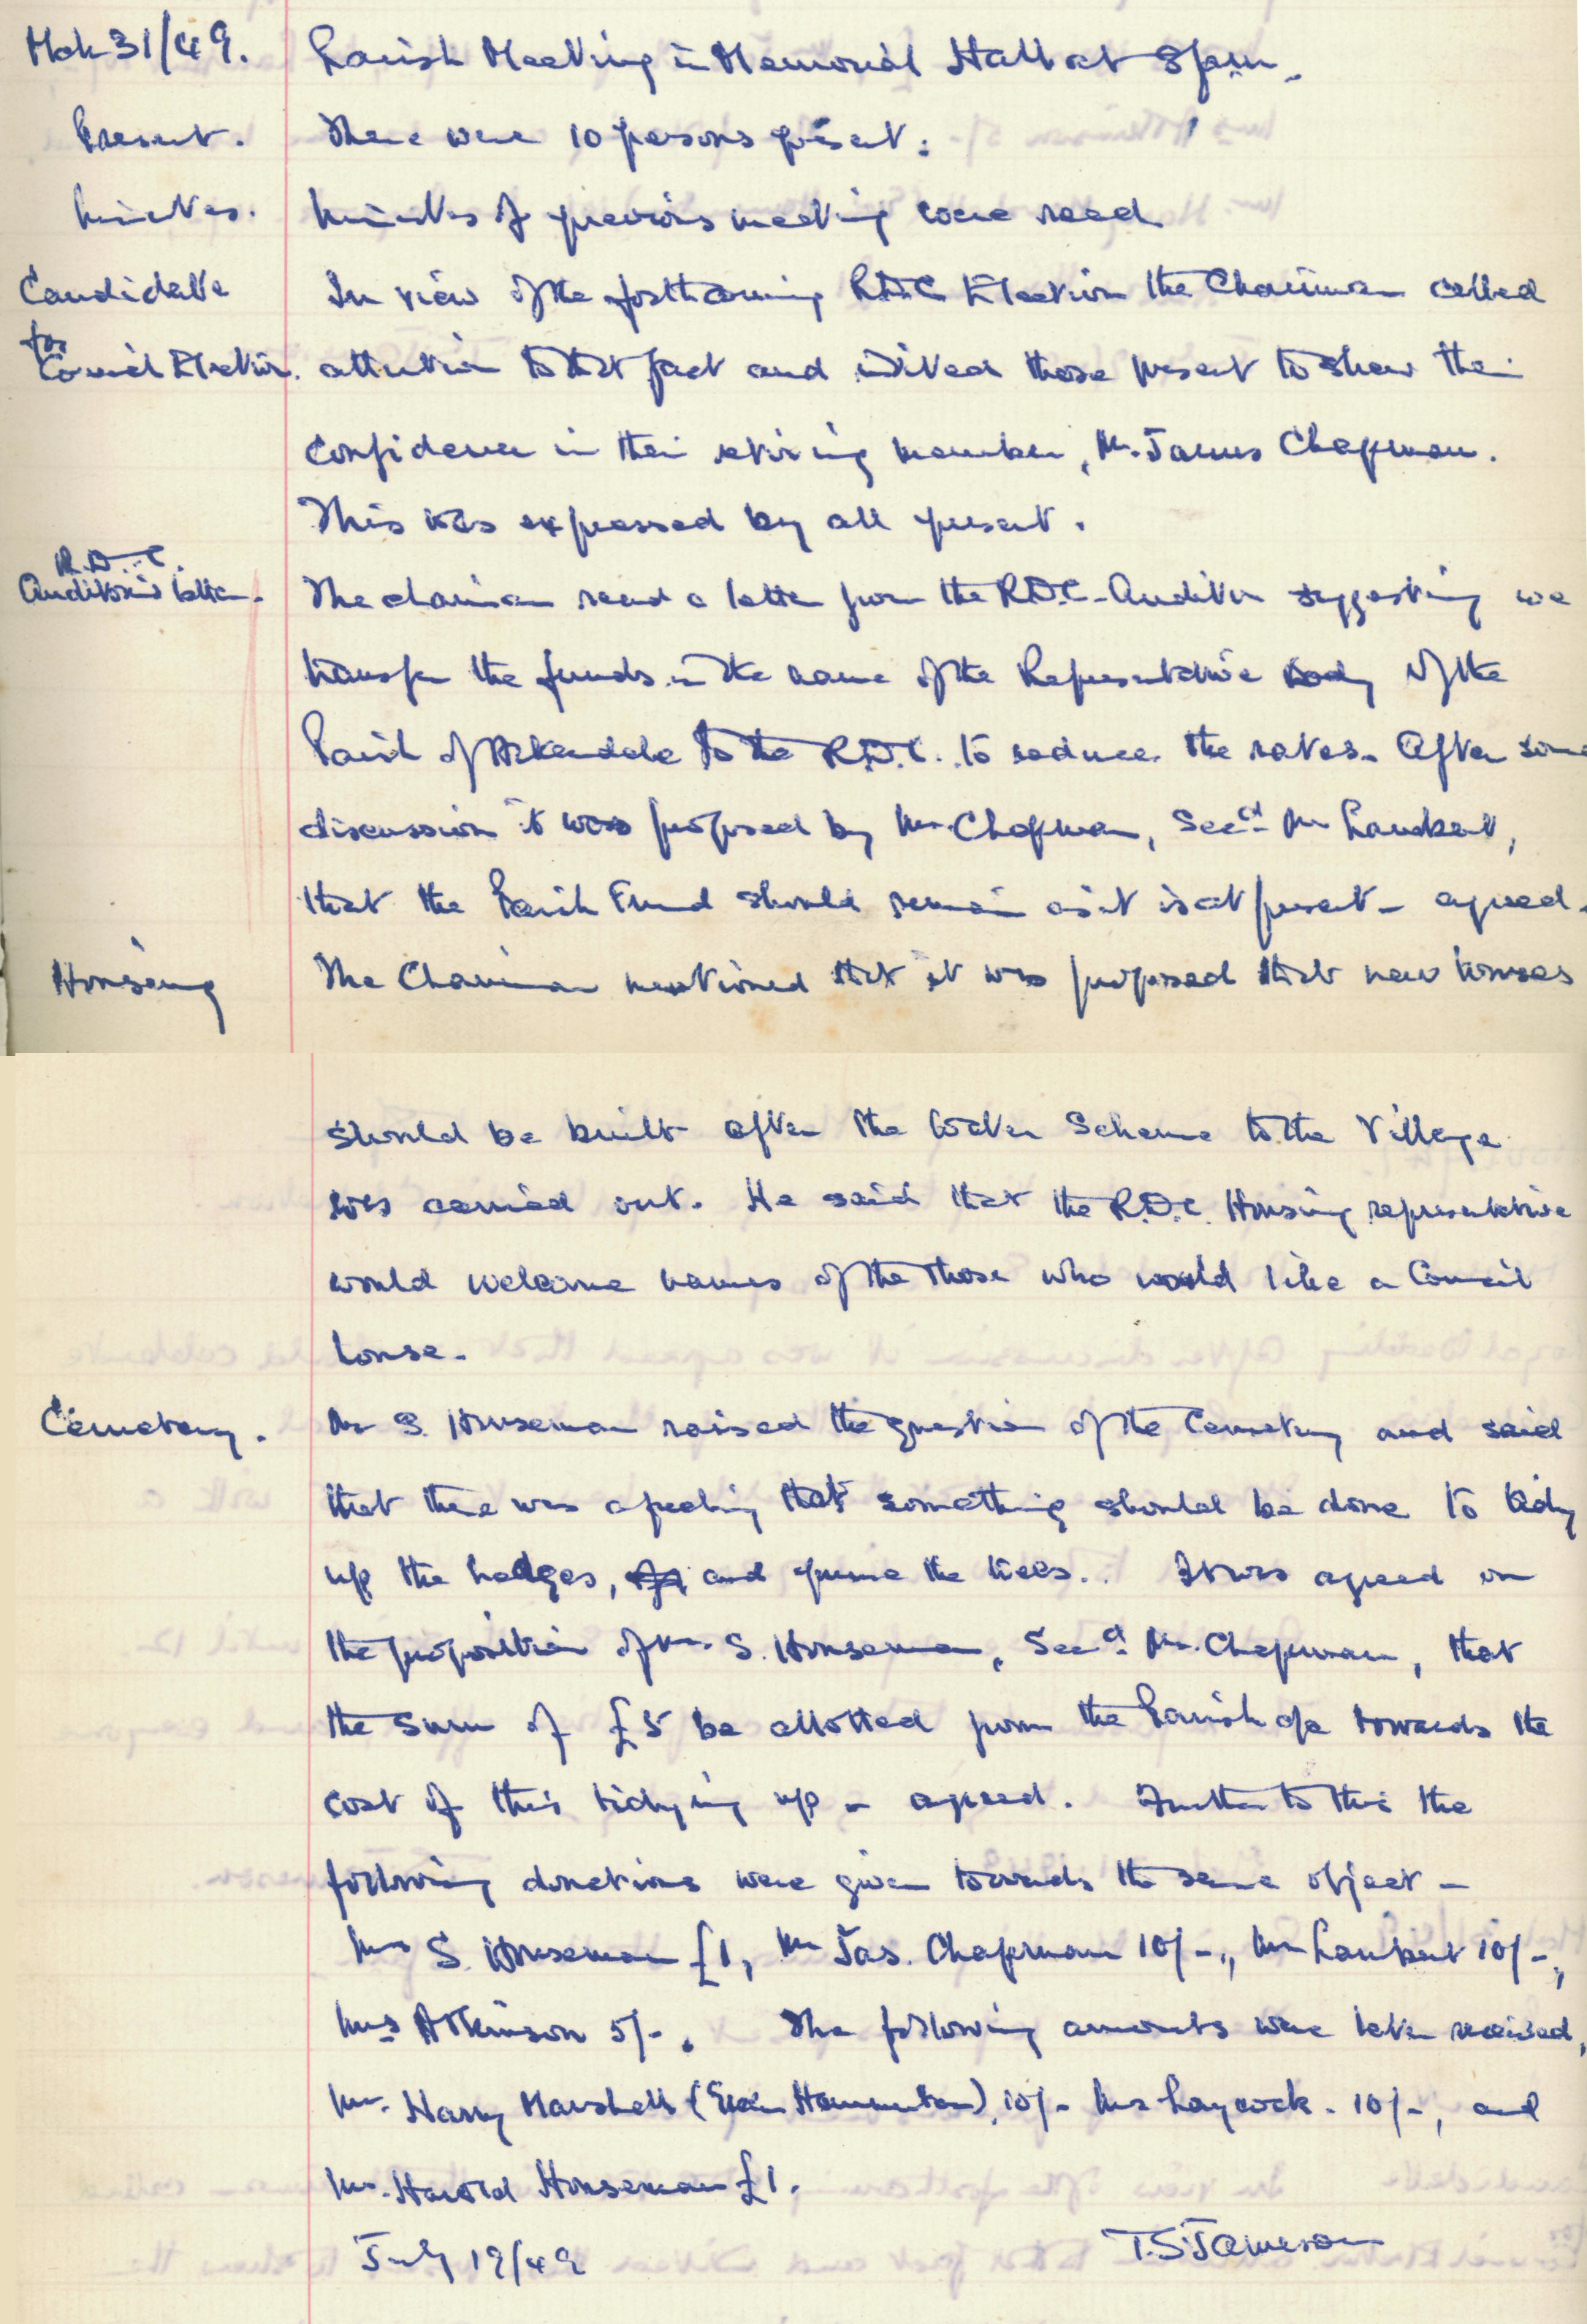 Mch 31/49. Parish Meeting in Memorial Hall at 8pm.
Present. There were 10 persons present.
Minutes. Minutes of previous meeting were read
Candidate In view of the forthcoming R.D.C Election the Chairman called
for
Council Election. attention to that fact and invited those present to show their
confidence in their retiring member, Mr. James Chapman.
This was expressed by all present.
R.D.C.
Auditor's letter. The chairman read a letter from the R.D.C. Auditor suggesting we
transfer the funds in the name of the Representative body of the
Parish of Arkendale to the R.D.C. to reduce the rates. After some
discussion it was proposed by Mr Chapman, Secd Mr Lambert,
that the Parish Fund should remain as it is at present - agreed.
Housing The Chairman mentioned that it was proposed that new houses
should be built after the Water Scheme to the Village
was carried out. He said that the R.D.C. Housing representative
would welcome names of the those who would like a Council
house.
Cemetery. Mr S. Houseman raised the question of the Cemetery and said
that there was a feeling that something should be done to tidy
up the hedges, and prune the trees. It was agreed on
the proposition of Mr. S. Houseman, Secd. Mr. Chapman, that
the sum of £5 be allotted from the Parish a/c towards the
cost of this tidying up - agreed. Further to this the
following donations were given towards the same object -
Mr S. Houseman £1, Mr Jas. Chapman 10/-, Mr Lambert 10/-,
Mrs Atkinson 5/-. The following amounts were later received,
Mr. Harry Marshall ( Hammerton) 10/- Mrs Laycock. 10/-, and
Mr. Harold Houseman £1.
July 19/49 T.S. Jameson